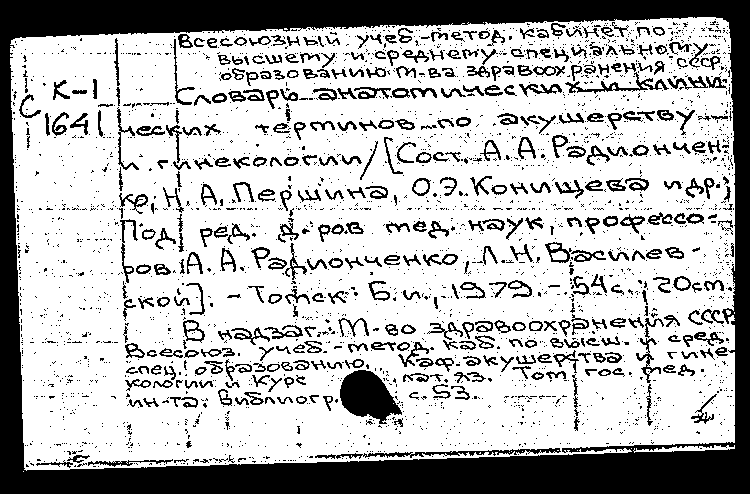 Всесоюзный учеб.-метод. кабинет по
высшему и среднему специальному
образованию М-ва здравоохранения СССР.
С К-1
1641
Словарь анатомических и клини-
ческих терминов по акушерству
и гинекологии/[Сост. А. А. Радиончен-
ко, Н. А. Першина, О.Э. Конищева и др.;
Под ред. д-ров мед. наук, профессо-
ров А. А. Радионченко, Л. Н. Василев-
ской]. - Томск: Б.и., 1979. - 54с.; 20см.
В надзаг.: М-во здравоохранения СССР.
Всесоюз. учеб.-метод. каб. по высш. и сред.
спец. образованию. Каф. акушерства и гине-
кологии и Курс лат. яз. Том. гос. мед.
ин-та. Библиогр. с. 53.